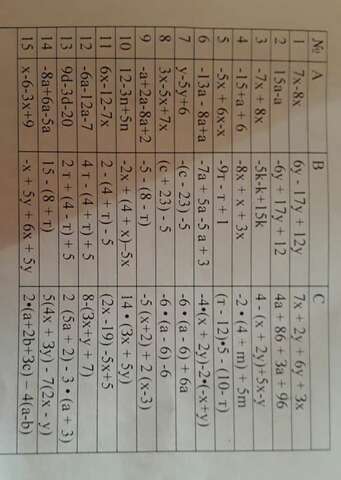 № A B C
1 7x-8x 6y - 17y + 12y 7x + 2y + 6y + 3x
2 15a-a -6y + 17y + 12 4a + 86 + 3a + 96
3 -7x + 8x -5k-k+15k 4 - (x + 2y)+5x-y
4 -15+a + 6 -8x + x + 3x -2 • (4 + m) + 5m
5 -5x + 6x-x -9т - т + 1 (т - 12)•5 - (10- т)
6 -13a - 8a+a -7a + 5a -5 a + 3 -4•(x + 2y)-2•(-x+y)
7 y-5y+6 -(c - 23) - 5 -6 • (a - 6) + 6a
8 3x-5x+7x (c + 23) - 5 -6 • (a - 6) -6
9 -a+2a-8a+2 -5 - (8 - т) -5 (x+2) + 2 (x-3)
10 12-3n+5n -2x + (4 + x)-5x 14 • (3x + 5y)
11 6x-12-7x 2 - (4 + т) - 5 (2x -19) -5x+5
12 -6a-12a-7 4 т - (4 + т) + 5 8-(3x+y + 7)
13 9d-3d-20 2 т + (4 - т) + 5 2 (5a + 2) - 3 • (a + 3)
14 -8a+6a-5a 15 - (8 + т) 5(4x + 3y) - 7(2x - y)
15 x-6-3x+9 -x + 5y + 6x + 5y 2•(a+2b+3c) – 4(a-b)